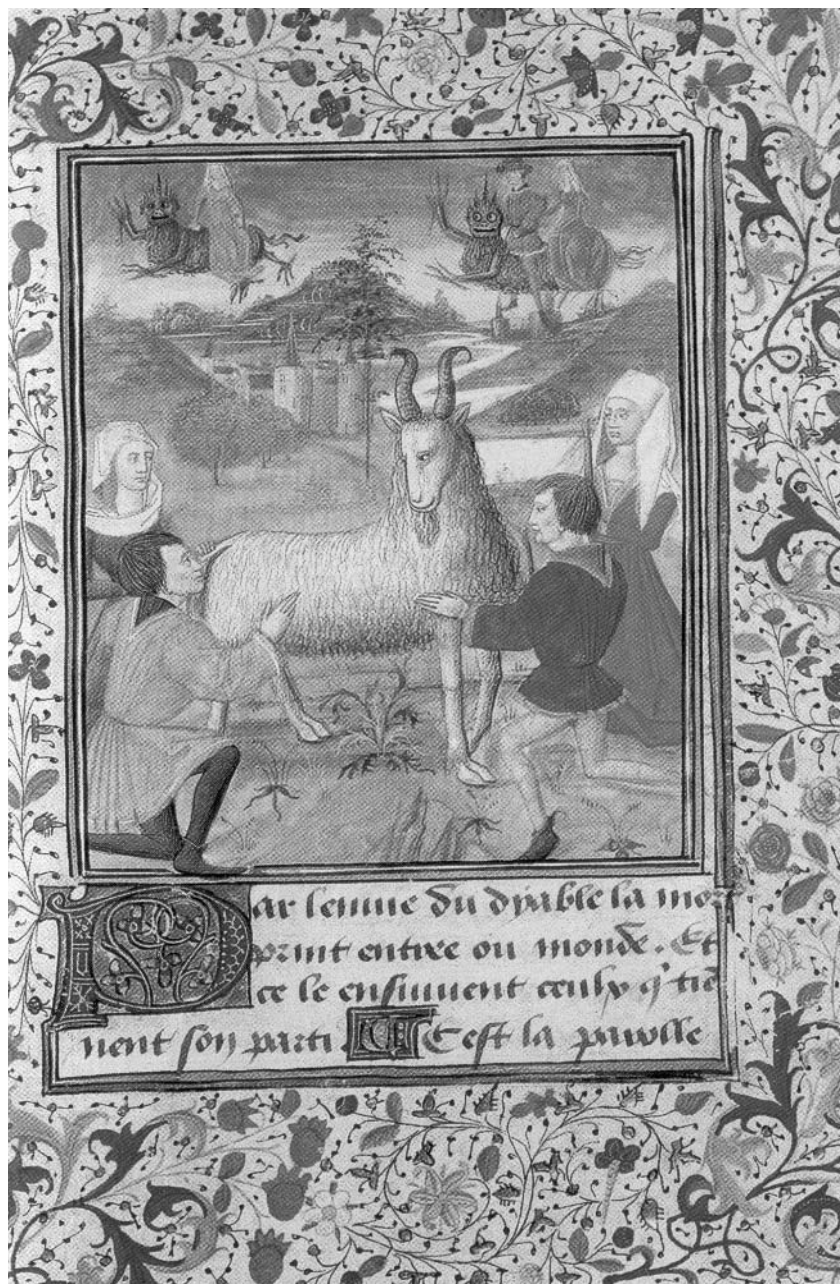 Par lenuie du dyable la mort
print entree ou monde. Et
ce le ensuiuent ceulx q̄ tiē
nent son parti. Cest la parolle